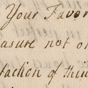 Your Favor
asure not o
faction of this